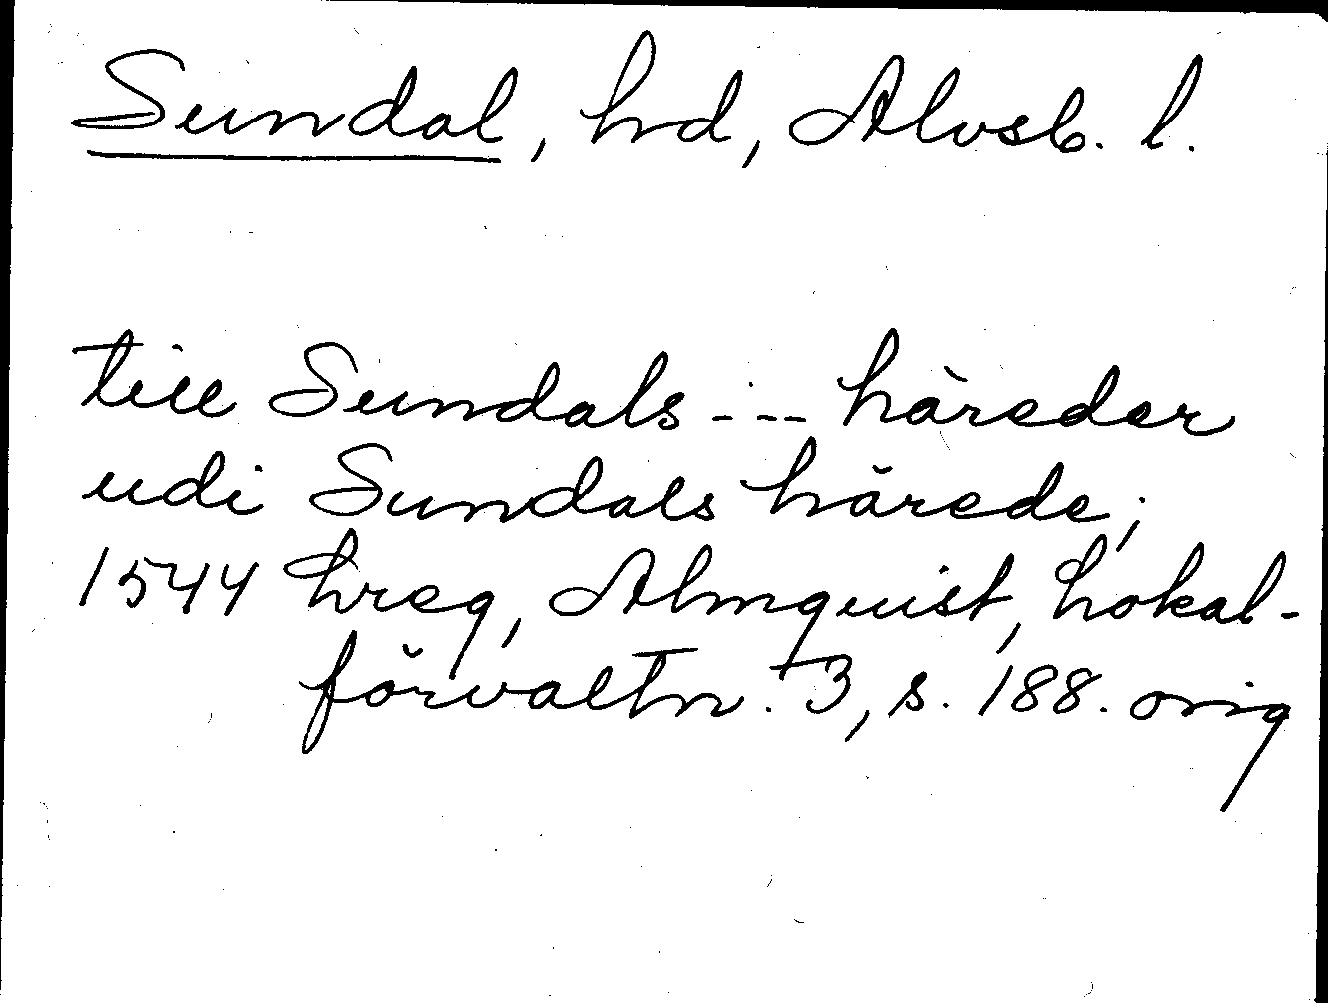 Sundal, hd, Älvsb. l.
till Sundals --- häreder
udi Sundals härede;
1544 hreg, Almquist, Lokal-
förvaltn. 3, s. 188. orig